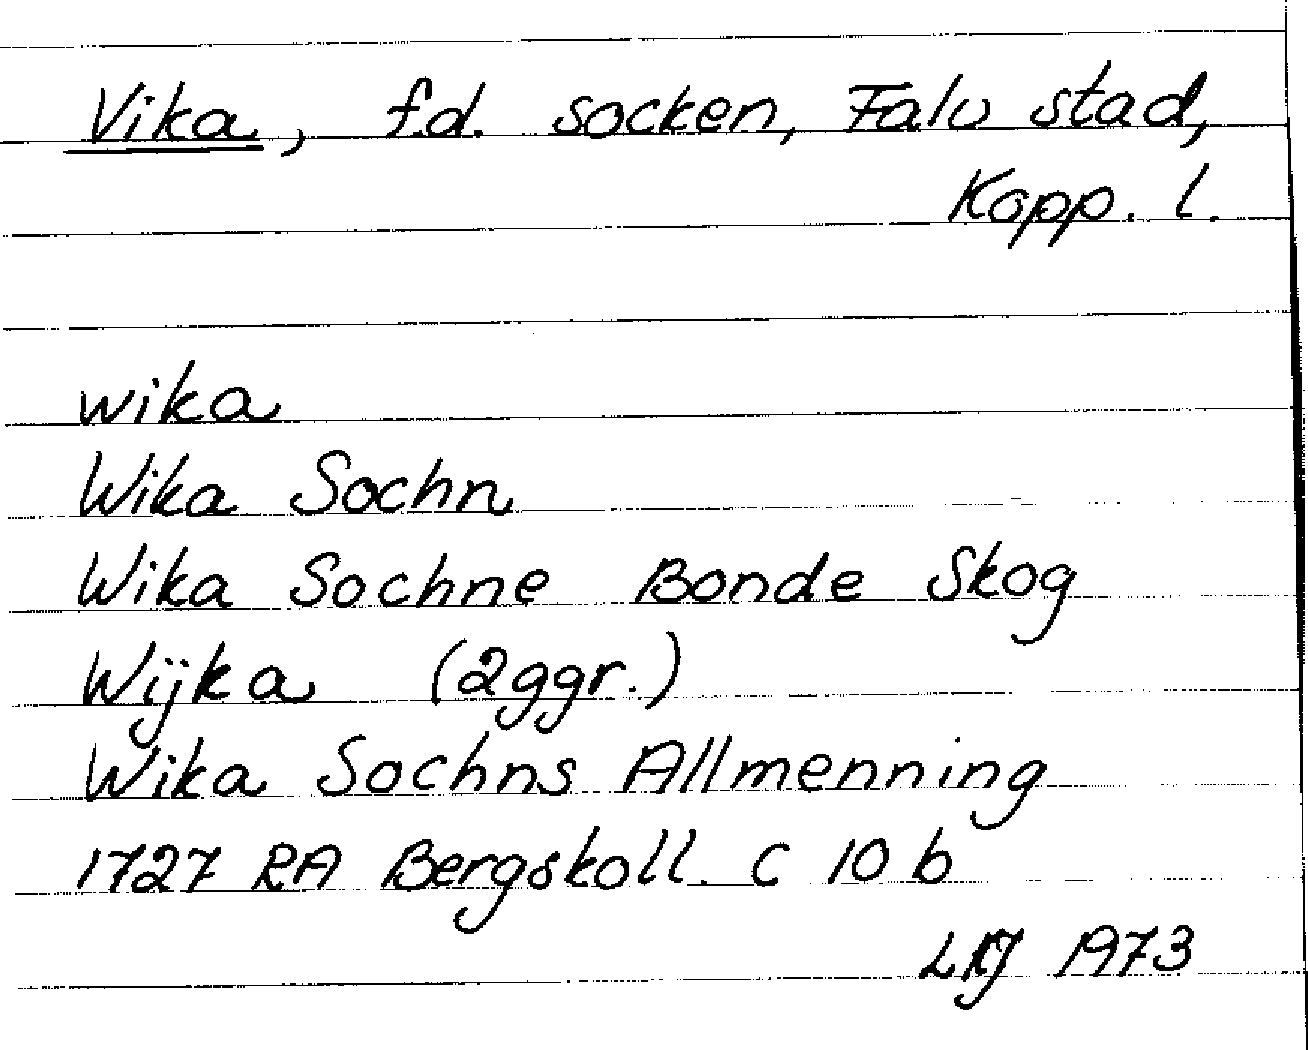 Vika, f.d. socken, Falu stad,
Kopp. l.
wika
Wika Sochn
Wika Sochne Bonde Skog
Wijka (2ggr.)
Wika Sochns Allmenning
1727 RA Bergskoll. C 10 b
1973